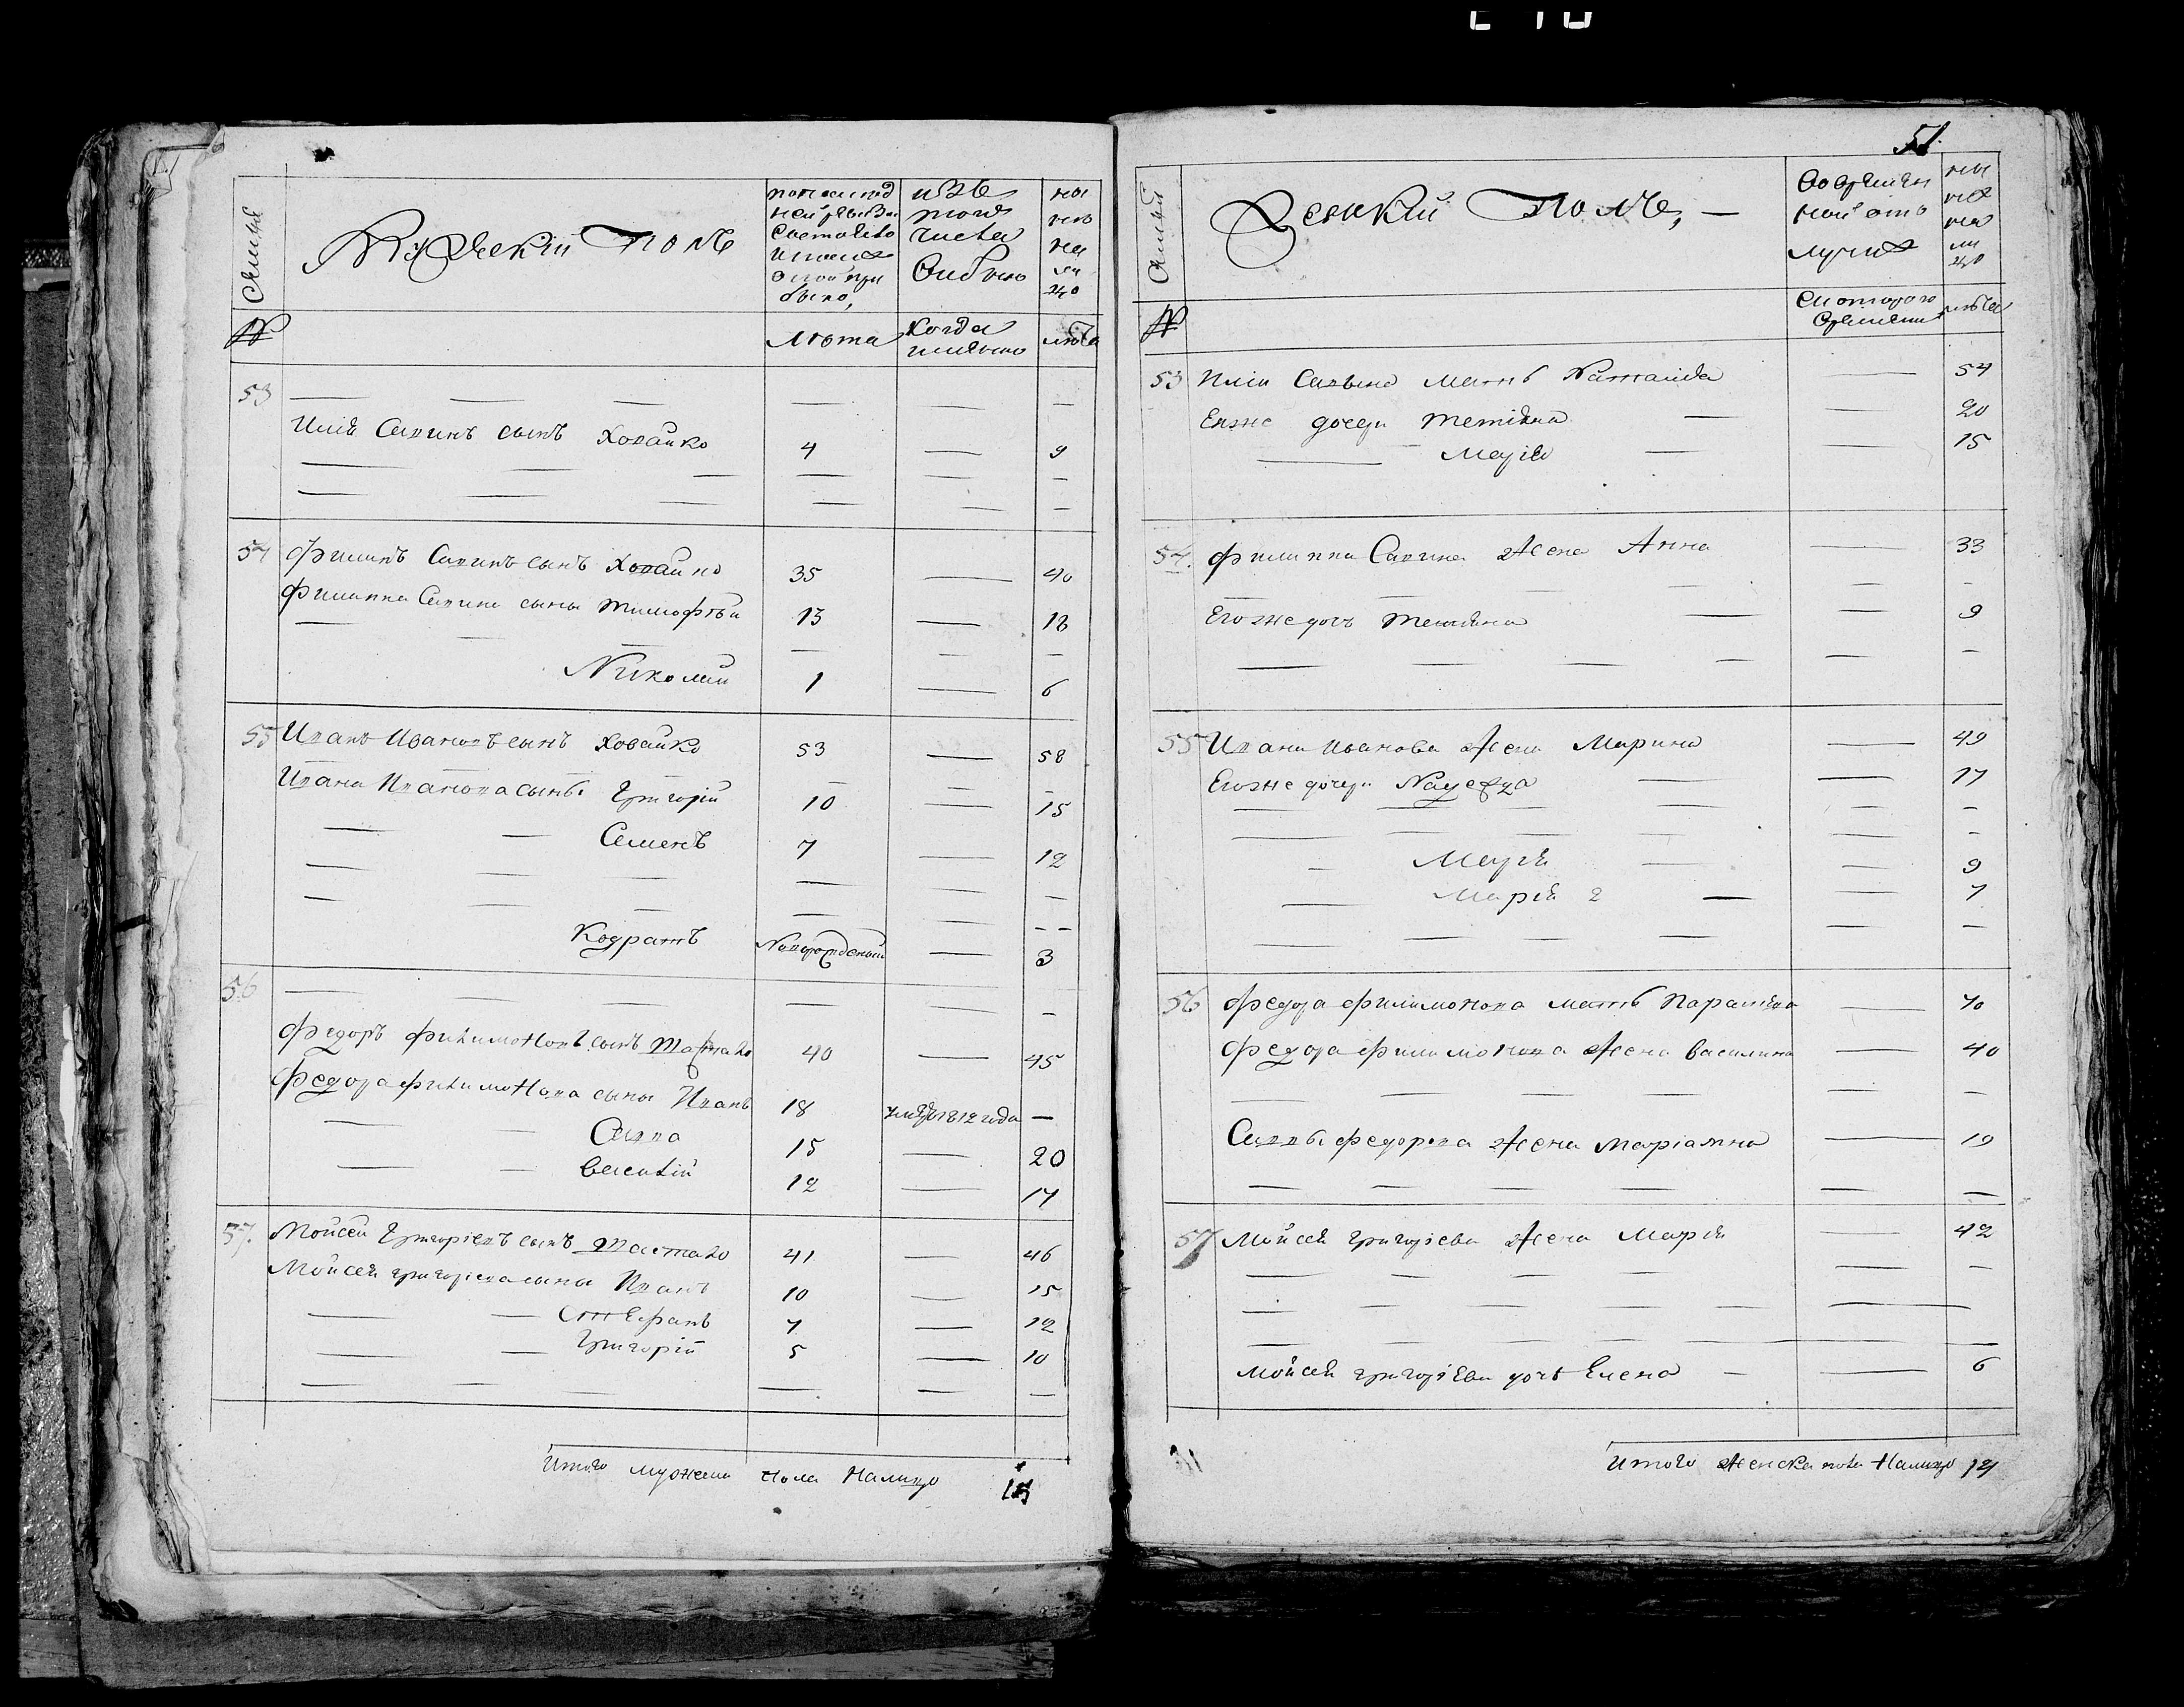 Мужеский полъ
По последней ревизии состояло и после оной прибыло,
изъ того числа выбыло
ныне на лицо
Семьи
№
Лѣта
Когда имянно
лѣта
53
Илія Савинъ сынъ Ховайко 4 — 9
54 Филипъ Савинъ сынъ Ховайко 35 — 40
Филиппа Савина сыны Тимофѣй 13 — 18
Николай 1 — 6
55 Иванъ Ивановъ сынъ Ховайко 53 — 58
Ивана Иванова сыны Григорій 10 — 15
Семенъ 7 — 12
Кодратъ Новорожденый — 3
56
Федоръ Филимоновъ сынъ 40 — 45
Федора Филимонова сыны Иванъ 18 1812 года —
Савва 15 — 20
Василій 12 — 17
57. Мойсей Григоріевъ сынъ 41 — 46
Мойсея Григоріева сыны Иванъ 10 — 15
Стефанъ 7 — 12
Григорій 5 — 10
Итого мужеска пола налицо
51.
Женский полъ, —
Семьи
во временной отлучке
ныне на лицо
№
Скоторого времени
лѣта
53 Иліи Савына мать Наталида — 54
Ево же дочери Тетіяна — 20
Марія — 15
54. Филиппа Савина жена Анна — 33
Его же дочъ Тетіяна — 9
55 Ивана Иванова жена Марина — 49
Его же дочери — 17
Марія — 9
Марія 2 — 7
56 Федора Филимонова мать Параскева — 70
Федора Филимонова жена Василина — 40
Саввы Федорова жена Маріамна — 19
57 Мойсея Григорiева жена Марія — 42
Мойсея Григоріева дочь Елена — 6
Итого женска пола налицо 14